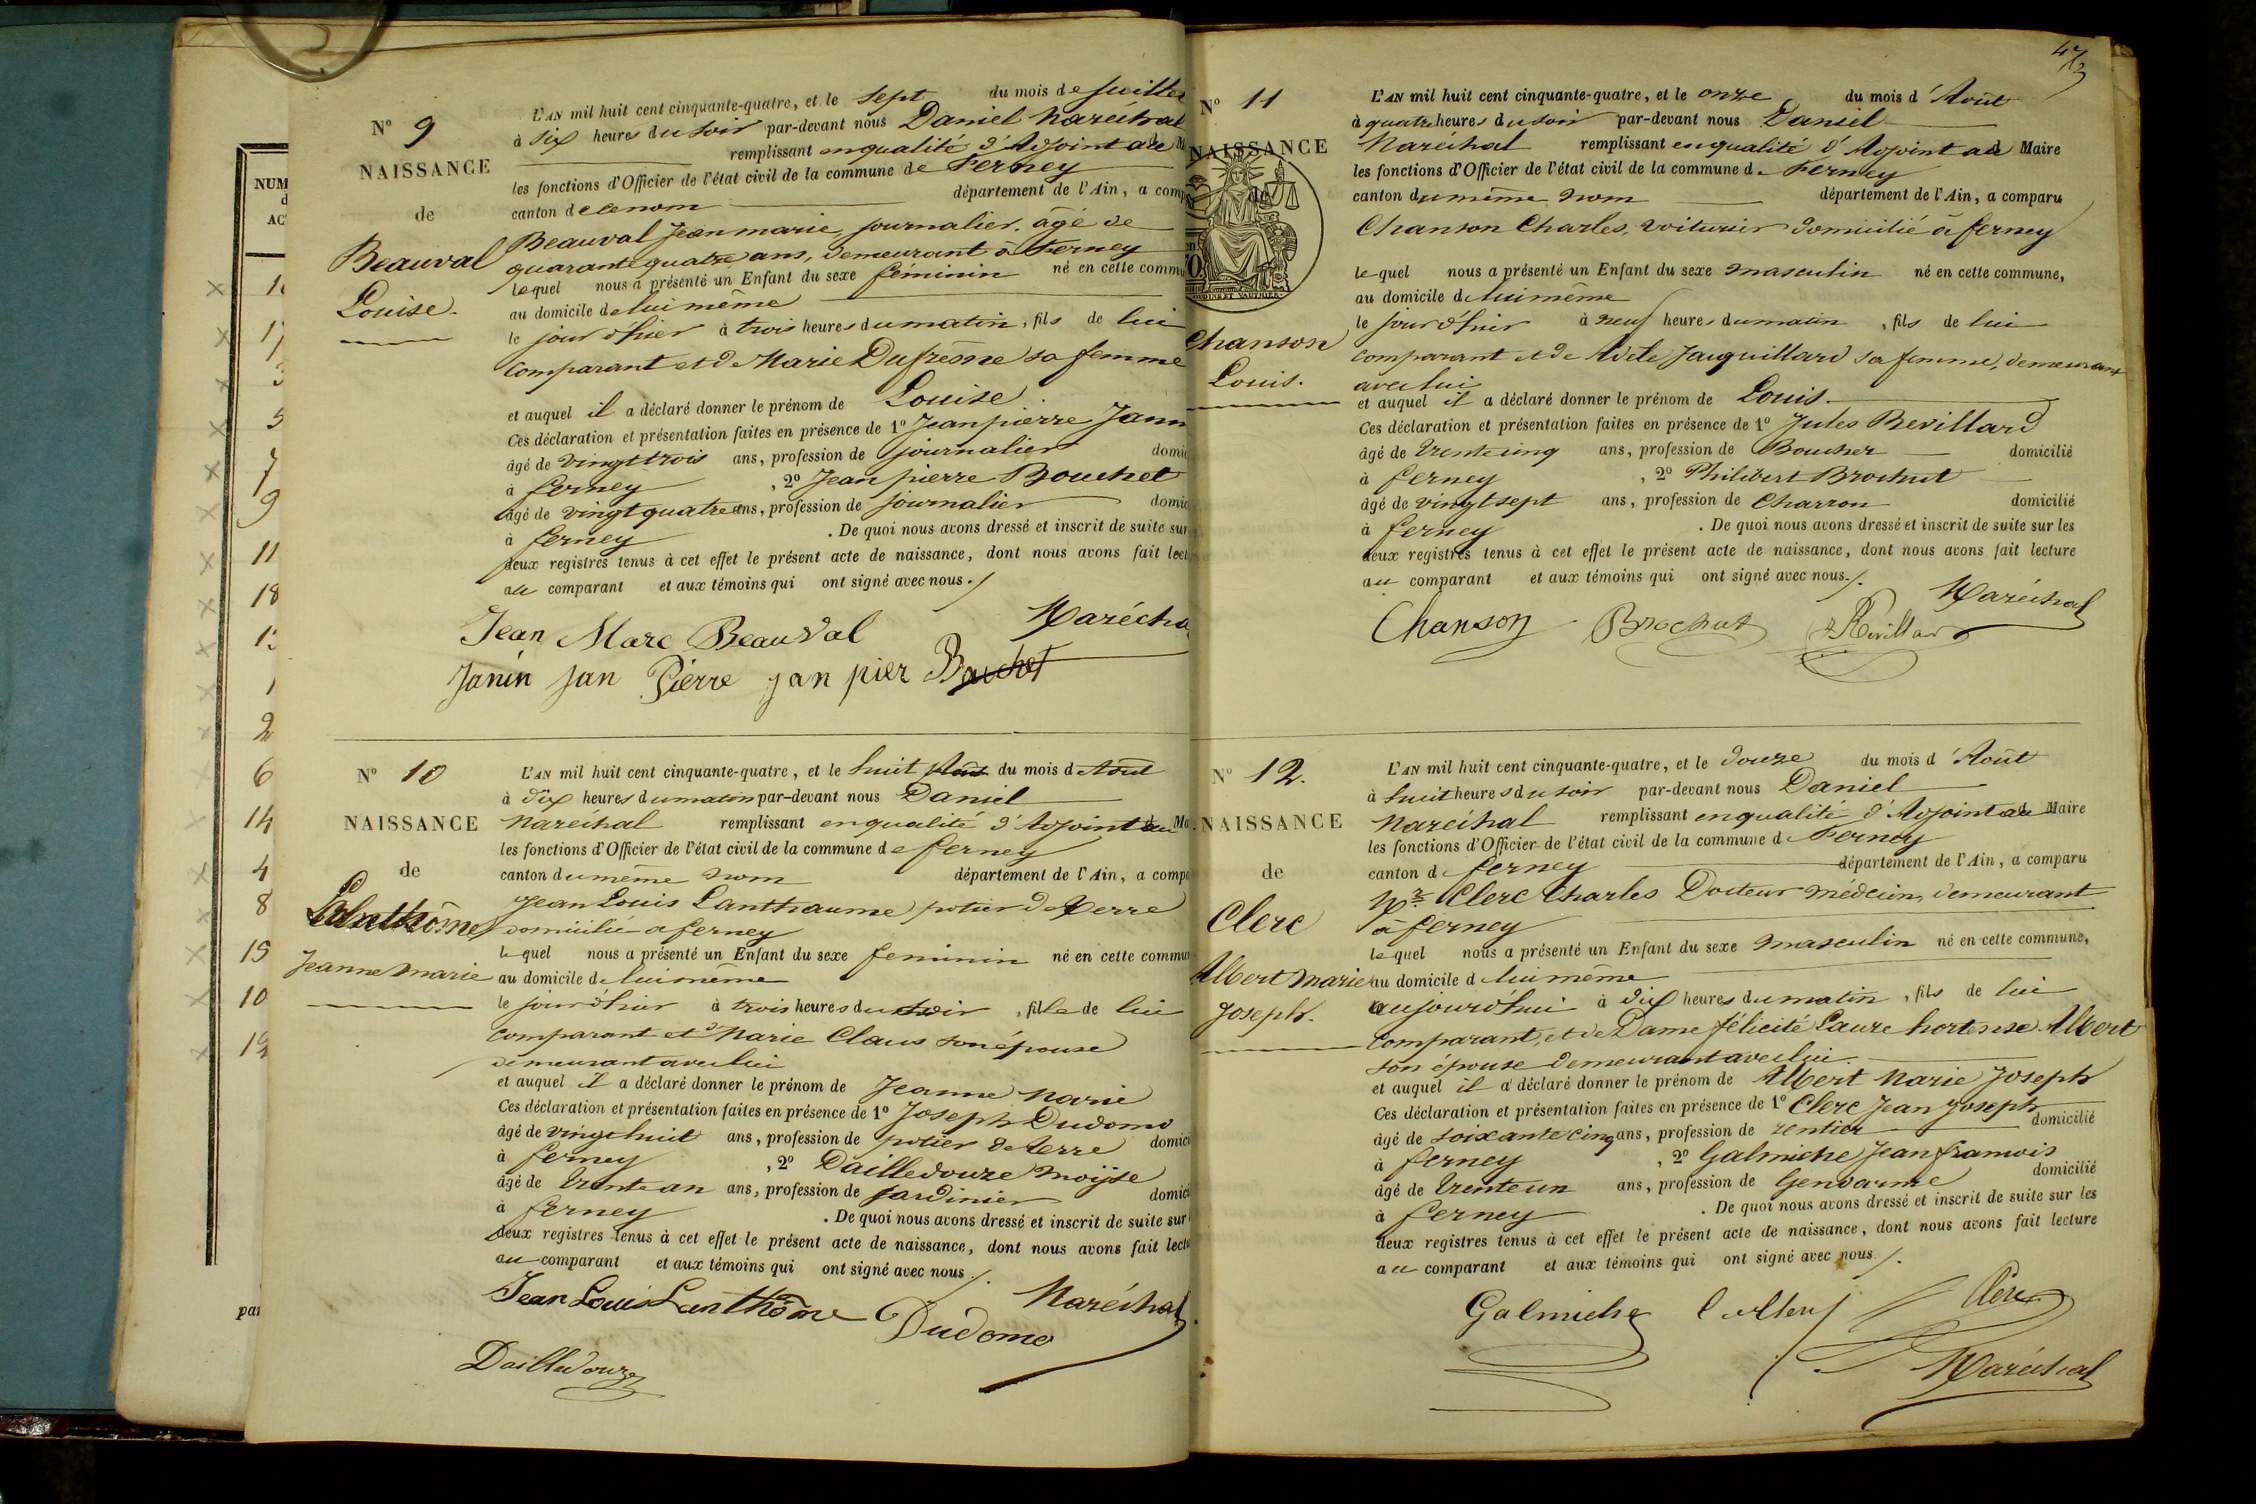 NUM
AC
11
18
1
2
6
14
4
8
15
10
19
par
N° 9
NAISSANCE
de
Beauval
Louise.
L'AN mil huit cent cinquante-quatre, et le sept du mois de Juillet
à six heures du soir par-devant nous Daniel Maréchal
remplissant en qualité d'Adjoint au M
les fonctions d'Officier de l'état civil de la commune de Ferney
canton de ce nom département de l'Ain, a comp
Beauval Jean marie, journalier, âgé de
quarante quatre ans, demeurant à Ferney
lequel nous a présenté un Enfant du sexe féminin né en cette commu
au domicile de lui même
le jour d'hier à trois heures du matin, fils de lui
comparant et de Marie Dufresne sa femme
et auquel il a déclaré donner le prénom de Louise.
Ces déclaration et présentation faites en présence de 1° Jean pierre Jann
âgé de vingt trois ans, profession de journalier domic
à ferney , 2° Jean pierre Bouchet
âgé de vingt quatre ans, profession de journalier domic
à ferney . De quoi nous avons dressé et inscrit de suite sur
deux registres tenus à cet effet le présent acte de naissance, dont nous avons fait lect
au comparant et aux témoins qui ont signé avec nous./
Marécha
Jean Marc Beauval
Janin jan Pierre jan pier Bouchet
N° 10
NAISSANCE
de
Lanthôme
Jeanne marie
L'AN mil huit cent cinquante-quatre, et le huit Août du mois d Août
à dix heures du matin par-devant nous Daniel
Maréchal remplissant en qualité d'Adjoint au Ma
les fonctions d'Officier de l'état civil de la commune de ferney
canton du même nom département de l'Ain, a compa
Jean Louis Lanthaume potier de terre
domicilié a ferney
lequel nous a présenté un Enfant du sexe feminin né en cette commun
au domicile de lui même
le jour d'hier à trois heures du soir, fille de lui
comparant et d Marie Claus son épouse
demeurant avec lui
et auquel il a déclaré donner le prénom de Jeanne Marie
Ces déclaration et présentation faites en présence de 1° Joseph Dudomo
âgé de vingt huit ans, profession de potier de terre domici
à ferney , 2° Dailledouze Moyse
âgé de trente an ans, profession de Jardinier domici
à ferney . De quoi nous avons dressé et inscrit de suite sur
deux registres tenus à cet effet le présent acte de naissance, dont nous avons fait lectu
au comparant et aux témoins qui ont signé avec nous /.
Jean Louis Lanthôme Dudomo Maréchal
Dailledouze
47
N° 11
NAISSANCE
de
Chanson
Louis.
L'AN mil huit cent cinquante-quatre, et le onze du mois d'Août
à quatre heures du soir par-devant nous Daniel
Maréchal remplissant en qualité d'Adjoint au Maire
les fonctions d'Officier de l'état civil de la commune de Ferney
canton du même nom département de l'Ain, a comparu
Chanson Charles, voiturier domicilié à ferney
lequel nous a présenté un Enfant du sexe masculin né en cette commune,
au domicile de lui même
le jour d'hier à neuf heures du matin, fils de lui
comparant et de Adele Jaquillard sa femme, demeurant
avec lui
et auquel il a déclaré donner le prénom de Louis.
Ces déclaration et présentation faites en présence de 1° Jules Revillard
âgé de trente cinq ans, profession de Boucher domicilié
à ferney , 2° Philibert Brochut
âgé de vingt sept ans, profession de Charron domicilié
à ferney . De quoi nous avons dressé et inscrit de suite sur les
deux registres tenus à cet effet le présent acte de naissance, dont nous avons fait lecture
au comparant et aux témoins qui ont signé avec nous./.
Maréchal
Chanson Brochut J Revillard
N° 12.
NAISSANCE
de
Clerc
Albert marie
Joseph.
L'AN mil huit cent cinquante-quatre, et le douze du mois d'Août
à huit heures du soir par-devant nous Daniel
Maréchal remplissant en qualité d'Adjoint au Maire
les fonctions d'Officier de l'état civil de la commune de Ferney
canton d ferney département de l'Ain, a comparu
Mr Clerc Charles Docteur médecin, demeurant
à ferney
lequel nous a présenté un Enfant du sexe masculin né en cette commune,
au domicile d lui même
aujourd'hui à dix heures du matin, fils de lui
comparant, et de Dame félicité Laure hortense Albert
son épouse demeurant avec lui.
et auquel il a déclaré donner le prénom de Albert Marie Joseph
Ces déclaration et présentation faites en présence de 1° Clerc Jean Joseph
âgé de soixante cinq ans, profession de rentier domicilié
à ferney , 2° Galmiche Jean francois
âgé de trente un ans, profession de Gendarme domicilié
à ferney . De quoi nous avons dressé et inscrit de suite sur les
deux registres tenus à cet effet le présent acte de naissance, dont nous avons fait lecture
au comparant et aux témoins qui ont signé avec nous /.
Galmiche Clerc
Maréchal